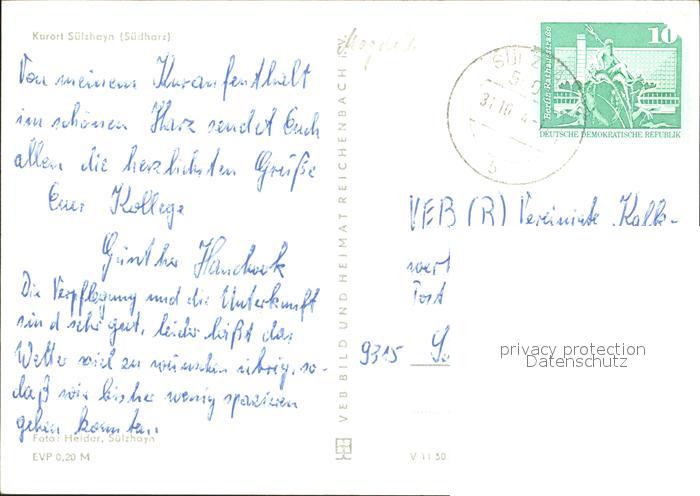 Kurort Sülzhayn (Südharz)
Von meinem Kuraufenthalt
im schönen Harz sendet Euch
allen die herzlichsten Grüße
Euer Kollege
Günther
Die Verpflegung und die Unterkunft
sind sehr gut, leider läßt das
Wetter viel zu wünschen übrig, so-
daß wir bisher wenig spazieren
gehen konnten.
Foto: Heider, Sülzhayn
EVP 0,20 M
VEB BILD UND HEIMAT REICHENBACH I. V.
V 11 50
SÜLZ
31.10
5
10
Berlin, Rathausstraße
DEUTSCHE DEMOKRATISCHE REPUBLIK
VEB (R) Vereinigte Kalk-
werk
Post
9315
privacy protection
Datenschutz